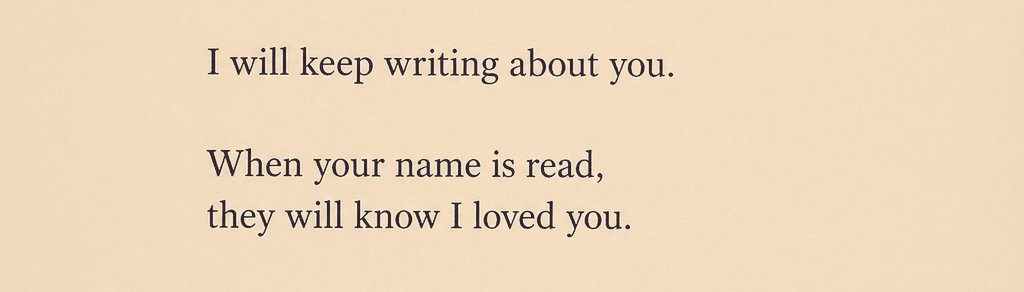 I will keep writing about you.
When your name is read,
they will know I loved you.